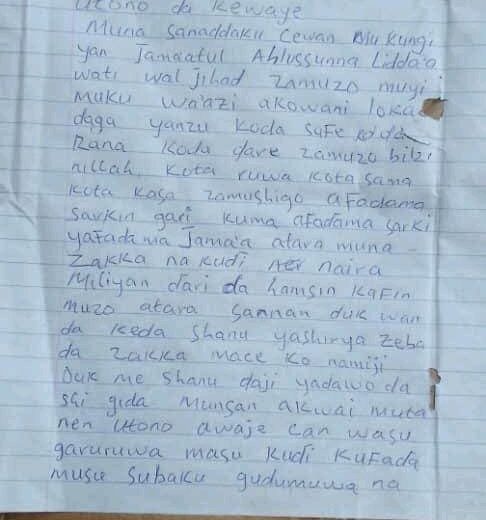 utono da kewaye
Muna Sanaddaku cewan Mu kungi
yan Jamaatul Ahlussunna Lidda'a
wati wal jihad zamuzo muyi
muku wa'azi akowani loka
daga yanzu koda safe
Rana koda dare zamuzo bilzi
nillah kota ruwa kota sama
kota kasa zamushigo afadama
sarkin gari kuma afadama sarki
yafada wa Jama'a atara muna
Zakka na kudi naira
Miliyan dari da hamsin kafin
muzo atara sannan duk wan
da keda shanu yashirya zeba
da zakka mace ko namiji
Duk me shanu daji yadawo da
su gida munsan akwai muta
nen utono awaje can wasu
garuruwa masu kudi kufada
musu subaku gudumuwa na